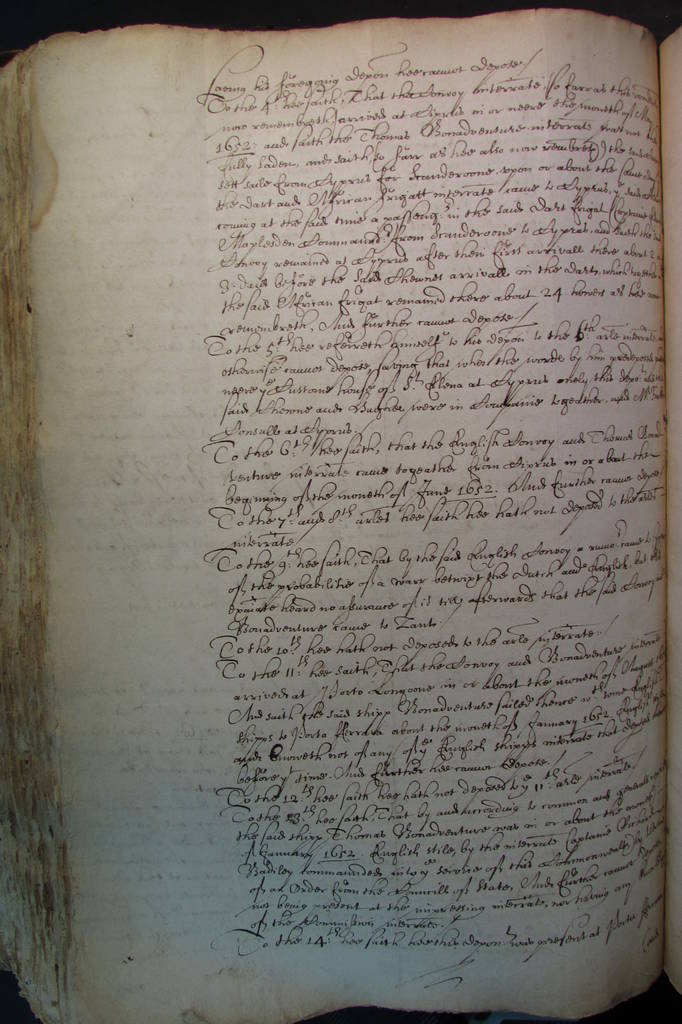 his foregoing depon hee cannot depose./
To the 4th. hee saith, That the Convoy interrate (so farr as this
now remembreth) arrived at Cyprus in or neere the moneth of
1652: and saith the Thomas Bonadventure interrate was not
fully laden, and saith (so farr as hee also now remembreth) the
sett saile from Cyprus for Scanderoone upon or about the same
the dart and African frigatt interrate came to Cyprus,
coming at the said time a passenger in the said Dart frigat (Captaine
Maplesden Commander) from Scanderoone to Cyprus, and saith the
Convoy remained at Cyprus after their first arrivall there about 2
3. daies before the said Thewnes arrivall in the dart, which together
the said African frigat remained there about 24 howers as hee
remembreth, And further cannot depose./
To the 5th. hee referreth himselfe to his depon to the 6th arle interrate
otherwise cannot depose, saving that when the words by him predeposed
neere ye Custome house of St. Elena at Cyprus only this depont
said Thewne and Hughes were in Companie together, and Mr
Consull at Cyprus./
To the 6.th hee saith, that the English Convoy and Thomas Bonad
venture interrate came together from Cyprus in or about the
beginning of the moneth of June 1652. And further cannot depose
To the 7th. and 8th. arles hee saith hee hath not deposed to the arles
interrate
To the 9th. hee saith, That by the said English Convoy a rumor came to
of the probabilitie of a warr betwixt the Dutch and English, but
heard no assurance of it till afterwards that the said Convoy
Bonadventure came to Zant.
To the 10.th hee hath not deposed to the arle interrate./
To the 11.th hee saith, That the Convoy and Bonadventure interrate
arrived at Porto Longone in or about the moneth of August
And saith the said shipp Bonadventure sailed thence with some English
shipps to Porto Ferrara about the moneth of January 1652 English
and knoweth not of any of ye English shipps interrate that departed
before yt time. And further hee cannot depose./
To the 12.th hee saith hee hath not deposed to ye 11th. arle interrate./
To the 13th hee saith, That by and according to common and generall
the said shipp Thomas Bonadventure was in or about the moneth
of January 1652. English stile, by the interrate Captaine Richard
Badiley commanded into ye service of this Commonwealth by
of an Order from the Councill of State, And further cannot depose
not being present at the impressing interrate, nor having any
of the Commission interrate./
To the 14.th hee saith hee this depont. was present at Porto